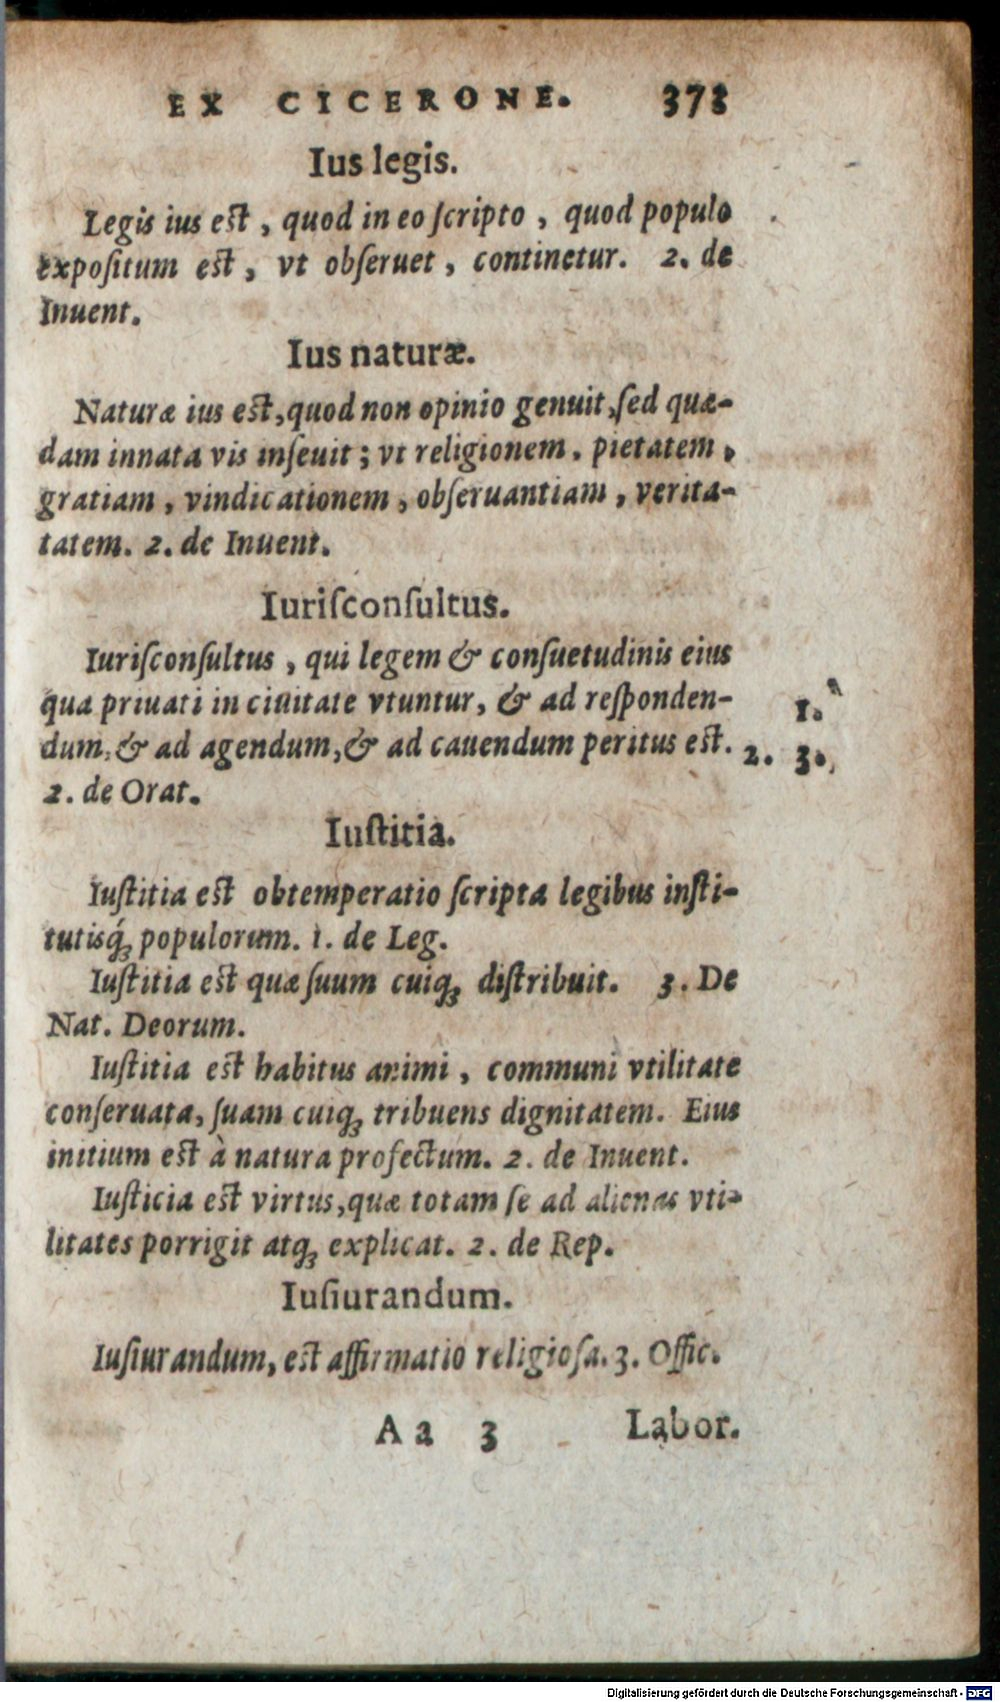 EX CICERONE. 373
Ius legis.
Legis ius est, quod in eo ſcripto, quod populo
expoſitum est, vt obſeruet, continetur. 2. de
Inuent.
Ius naturæ.
Naturæ ius est, quod non opinio genuit, ſed quæ-
dam innata vis inſeuit; vt religionem, pietatem,
gratiam, vindicationem, obſeruantiam, verita-
tatem. 2. de Inuent.
Iuriſconſultus.
Iuriſconſultus, qui legem & conſuetudinis eius
qua priuati in ciuitate vtuntur, & ad reſponden-
dum, & ad agendum, & ad cauendum peritus est.
1.
2. 3.
2. de Orat.
Iuſtitia.
Iuſtitia est obtemperatio ſcripta legibus inſti-
tutisq́ꝫ populorum. 1. de Leg.
Iuſtitia est quæ ſuum cuiqꝫ diſtribuit. 3. De
Nat. Deorum.
Iuſtitia est habitus animi, communi vtilitate
conſeruata, ſuam cuiqꝫ tribuens dignitatem. Eius
initium est à natura profectum. 2. de Inuent.
Iuſticia est virtus, quæ totam ſe ad alienas vti-
litates porrigit atqꝫ explicat. 2. de Rep.
Iuſiurandum.
Iuſiurandum, est affirmatio religioſa. 3. Offic.
Aa 3 Labor.
Digitalisierung gefördert durch die Deutsche Forschungsgemeinschaft - DFG